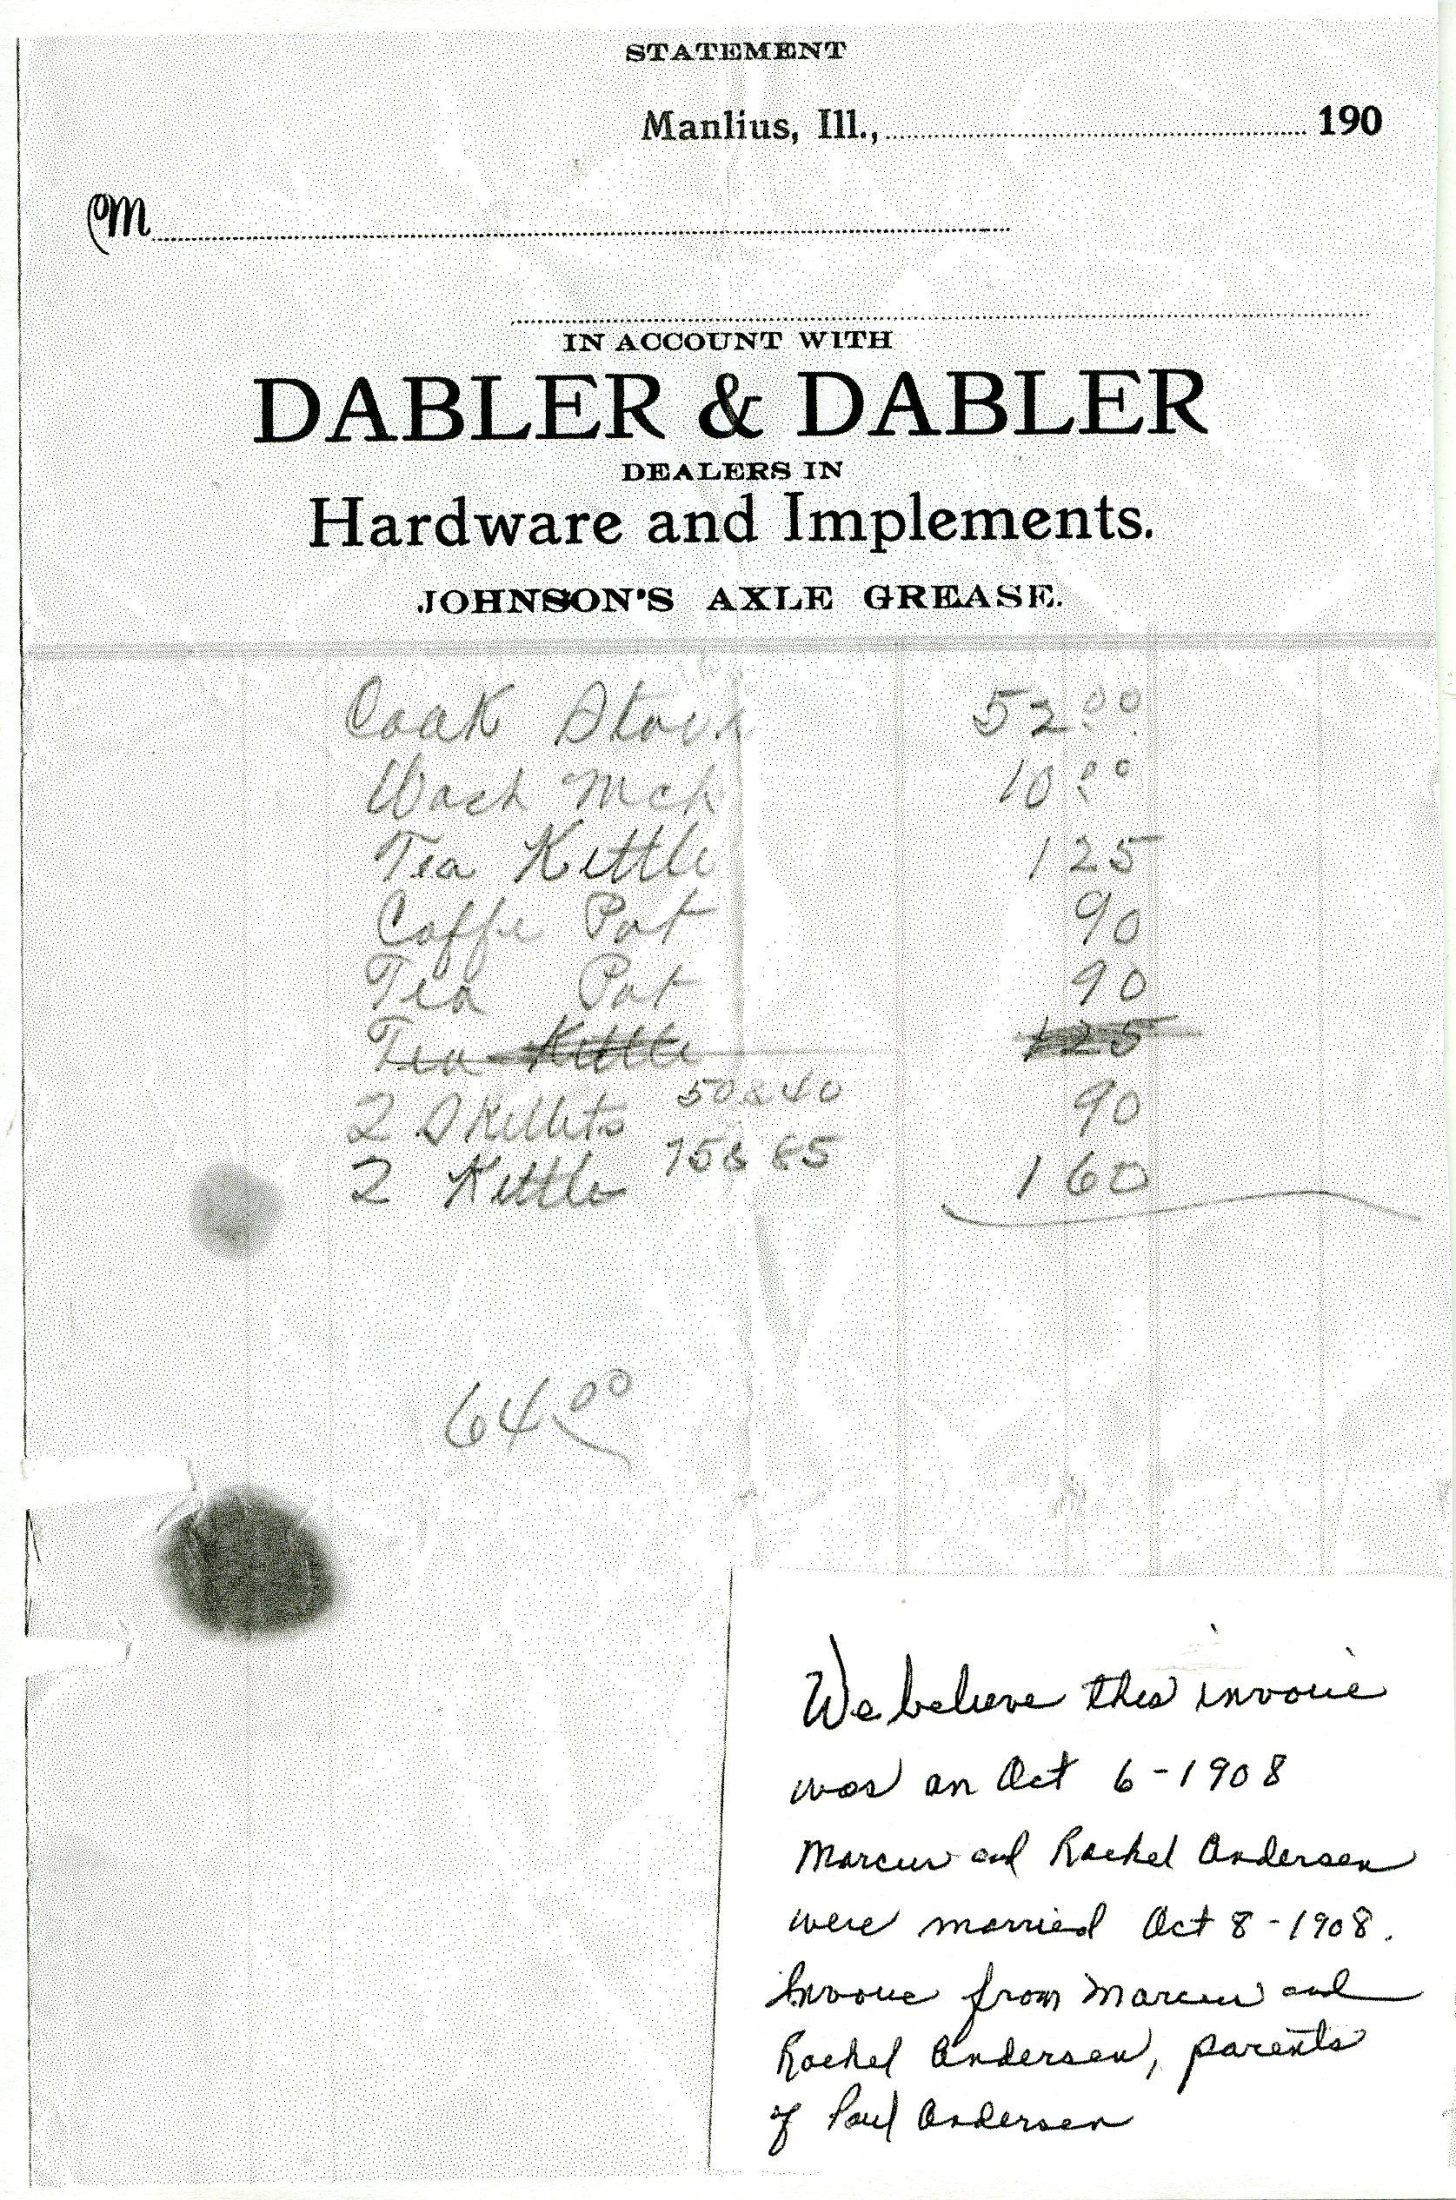 STATEMENT
Manlius, Ill., 190
M
IN ACCOUNT WITH
DABLER & DABLER
DEALERS IN
Hardware and Implements.
JOHNSON'S AXLE GREASE.
Cook Stove 52.00
Wash Mch 10.00
Tea Kettle 125
Coffe Pot 90
Tea Pot 90
Tea Kettle 125
2 Skillets 50 & 40 90
2 Kettle 75 & 85 160
64.00
We believe this invoice
was on Oct 6-1908
Marcus and Rachel Andersen
were married Oct 8-1908.
Invoice from Marcus and
Rachel Andersen, parents
of Paul Andersen